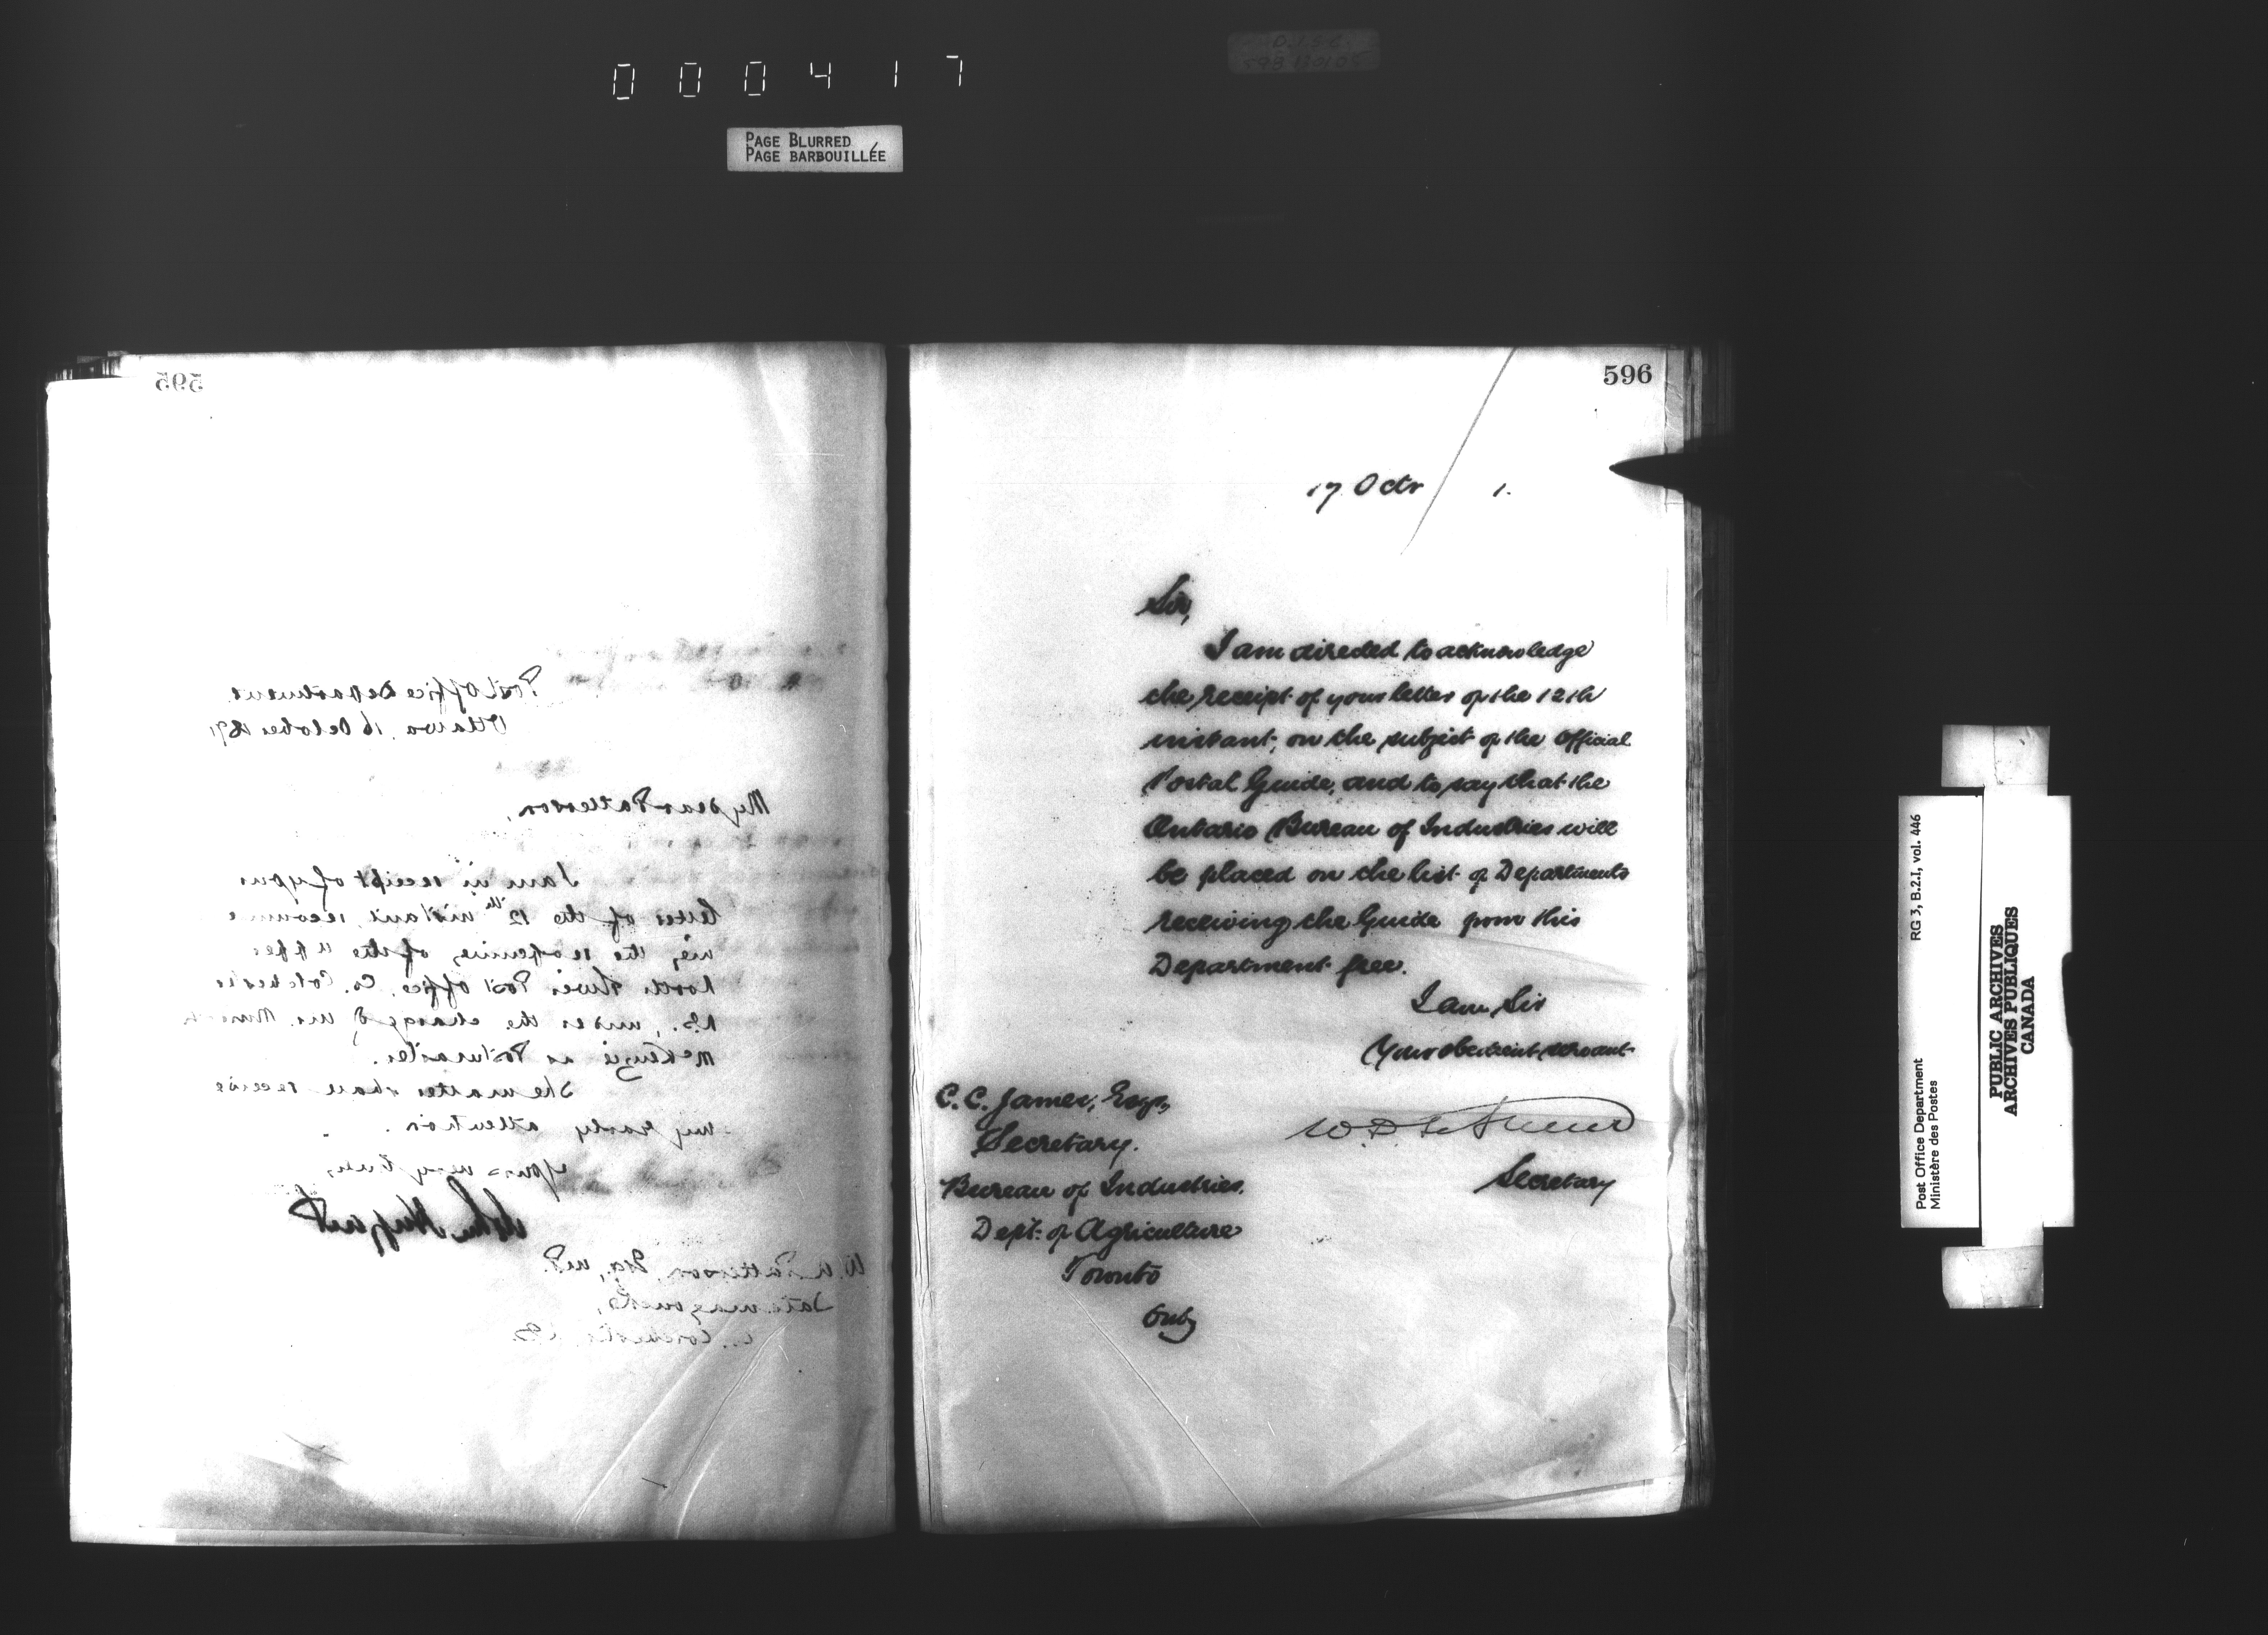 000417
PAGE BLURRED
PAGE BARBOUILLÉE
595
Post Office Department
Ottawa, 16 October 1891
My dear Patterson,
I am in receipt of your
letter of the 12th instant, recomme
the reopening of the Upper
North River Post Office, Co. Colchester
N.S., under the charge of Mr.
McKenzie as Postmaster.
The matter shall receive
my early attention.
Yours very truly,
John Haggart
W. A. Patterson, Esq., M.P.
Tatamagouche,
Colchester, N.S.
596
17 Octr 1.
Sir,
I am directed to acknowledge
the receipt of your letter of the 12th
instant, on the subject of the Official
Postal Guide, and to say that the
Ontario Bureau of Industries will
be placed on the list of Departments
receiving the Guide from this
Department free.
I am, Sir
Your obedient servant
W. D. LeSueur
Secretary
C. C. James, Esqr.,
Secretary.
Bureau of Industries.
Dept. of Agriculture
Toronto
Ont
RG 3, B.2.I, vol. 446
Post Office Department
Ministère des Postes
PUBLIC ARCHIVES
ARCHIVES PUBLIQUES
CANADA